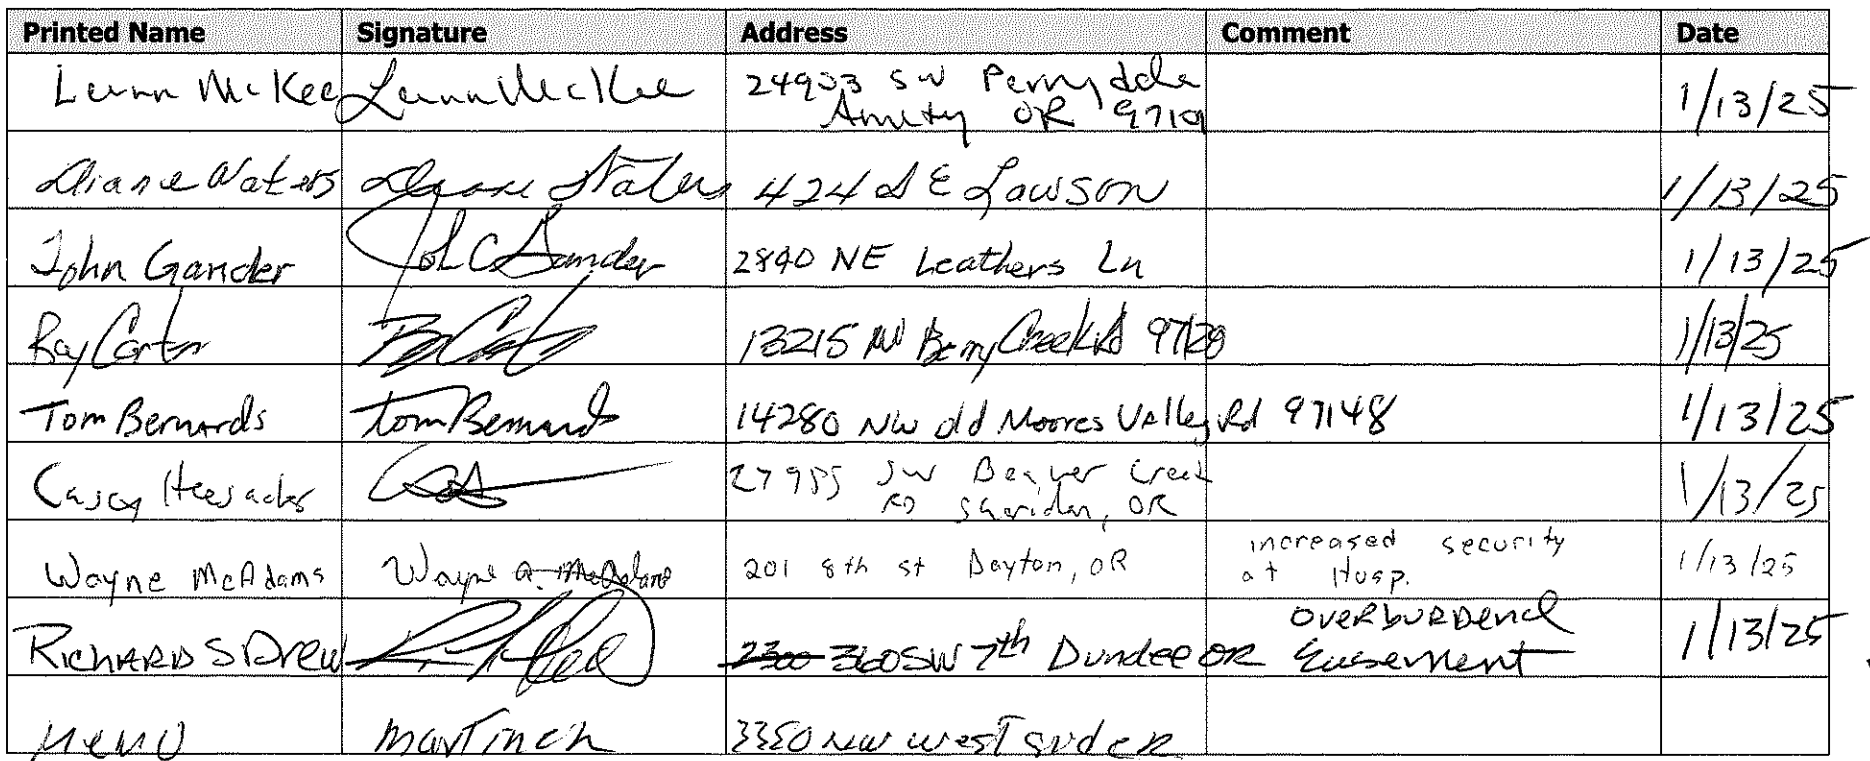 Printed Name Signature Address Comment Date
Lunn McKee Lunn McKee 24903 SW Perrydale 1/13/25
Amity OR 9710
Diane Waters Diane Waters 424 SE Lawson 1/13/25
John Gander John C Gander 2840 NE Leathers Ln 1/13/25
Ray Carter 13215 NW Berry Creek Rd 97128 1/13/25
Tom Bernards tom Bernards 14280 NW old Moores Valley Rd 97148 1/13/25
Casey Heesacker 27955 SW Beaver Creek 1/13/25
RD Sheridan, OR
Wayne McAdams Wayne A. McAdams 201 8th st Dayton, OR increased security 1/13/25
at Hosp.
RICHARD S Drew 2300 360 SW 7th Dundee OR OVERBURDENed 1/13/25
Easement
3350 NW west